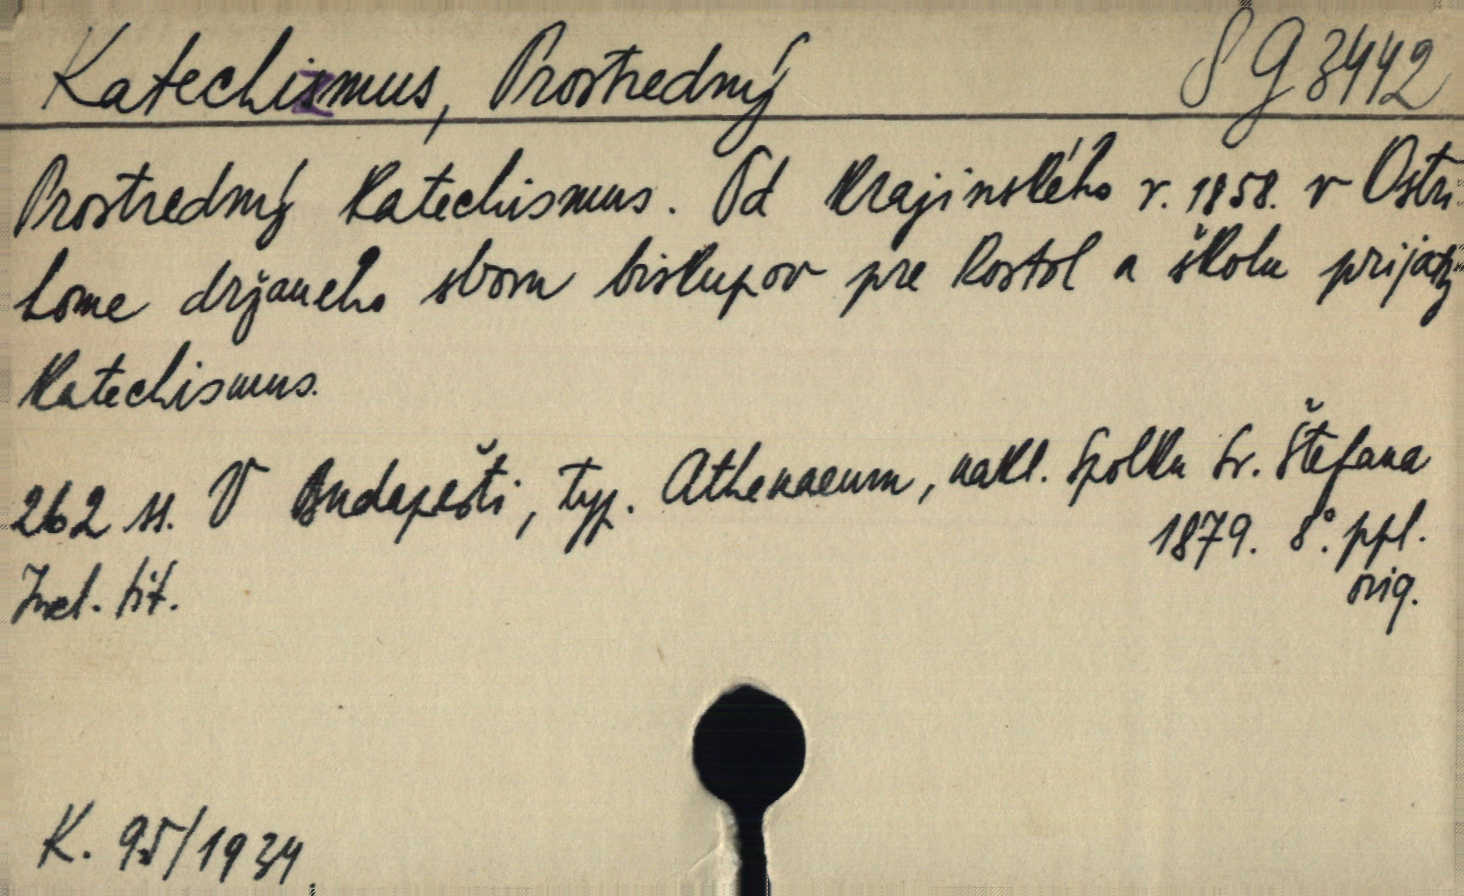 Katechizmus, Prostredný SG 3442
Prostredný Katechismus. Od Krajinského r. 1858. v Ostri-
home držaného sboru biskupov pre kostol a školu prijatý
Katechismus.
262 ss. V Budapešti, typ. Athenaeum, nakl. Spolku Sv. Štefana
1879. 8°. ppl.
Incl. tit. orig.
K. 95/1934.